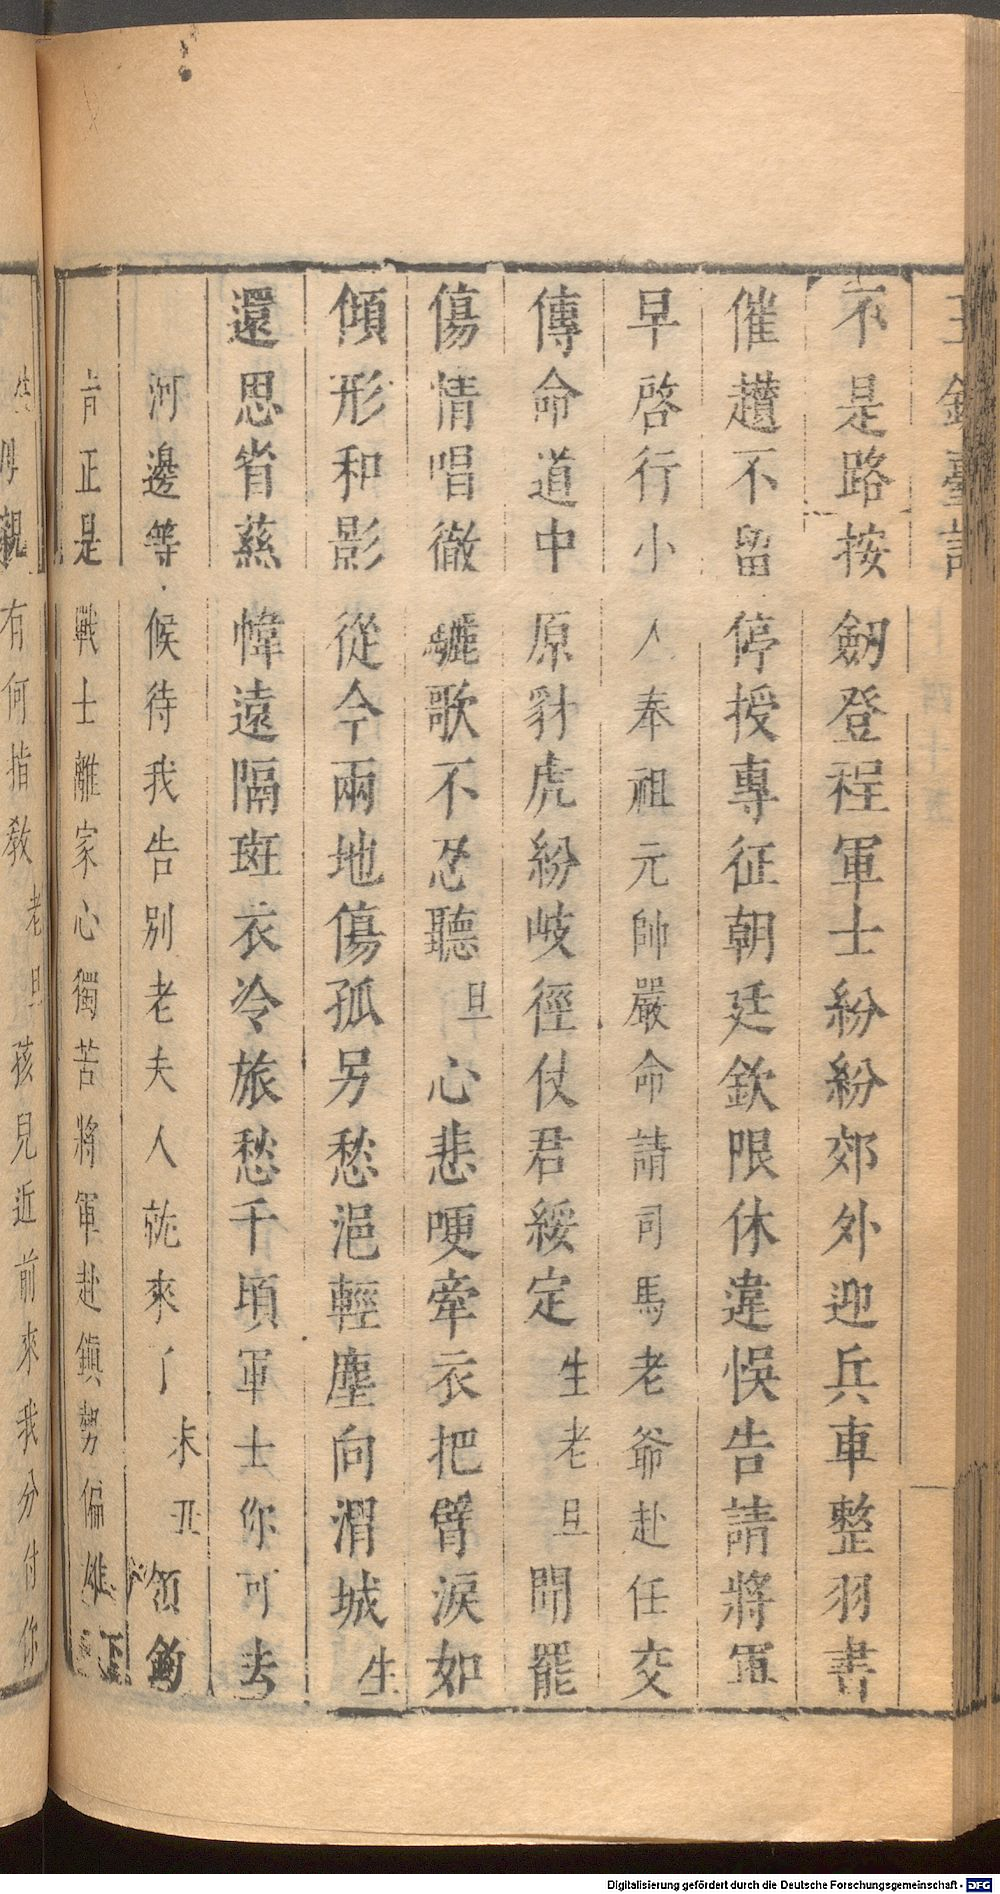 玉釵臺記
不是路按劒登程軍士紛紛郊外迎兵車整羽書
催趲不留停授專征朝廷欽限休違悞告請將軍
早啓行小人奉祖元帥嚴命請司馬老爺赴任交
傳命道中原豺虎紛岐徑仗君綏定生老旦聞罷
傷情唱徹驪歌不忍聽旦心悲哽牽衣把臂淚如
傾形和影從今兩地傷孤另愁浥輕塵向渭城生
還思省蒸幃遠隔斑衣冷旅愁千頃軍士你可去
河邊等候待我告别老夫人就來了末丑領鈞
旨正是戰士離家心獨苦將軍赴鎮勢偏雄下
有何指教老旦孩兒近前來我分付你
Digitalisierung gefördert durch die Deutsche Forschungsgemeinschaft - DFG